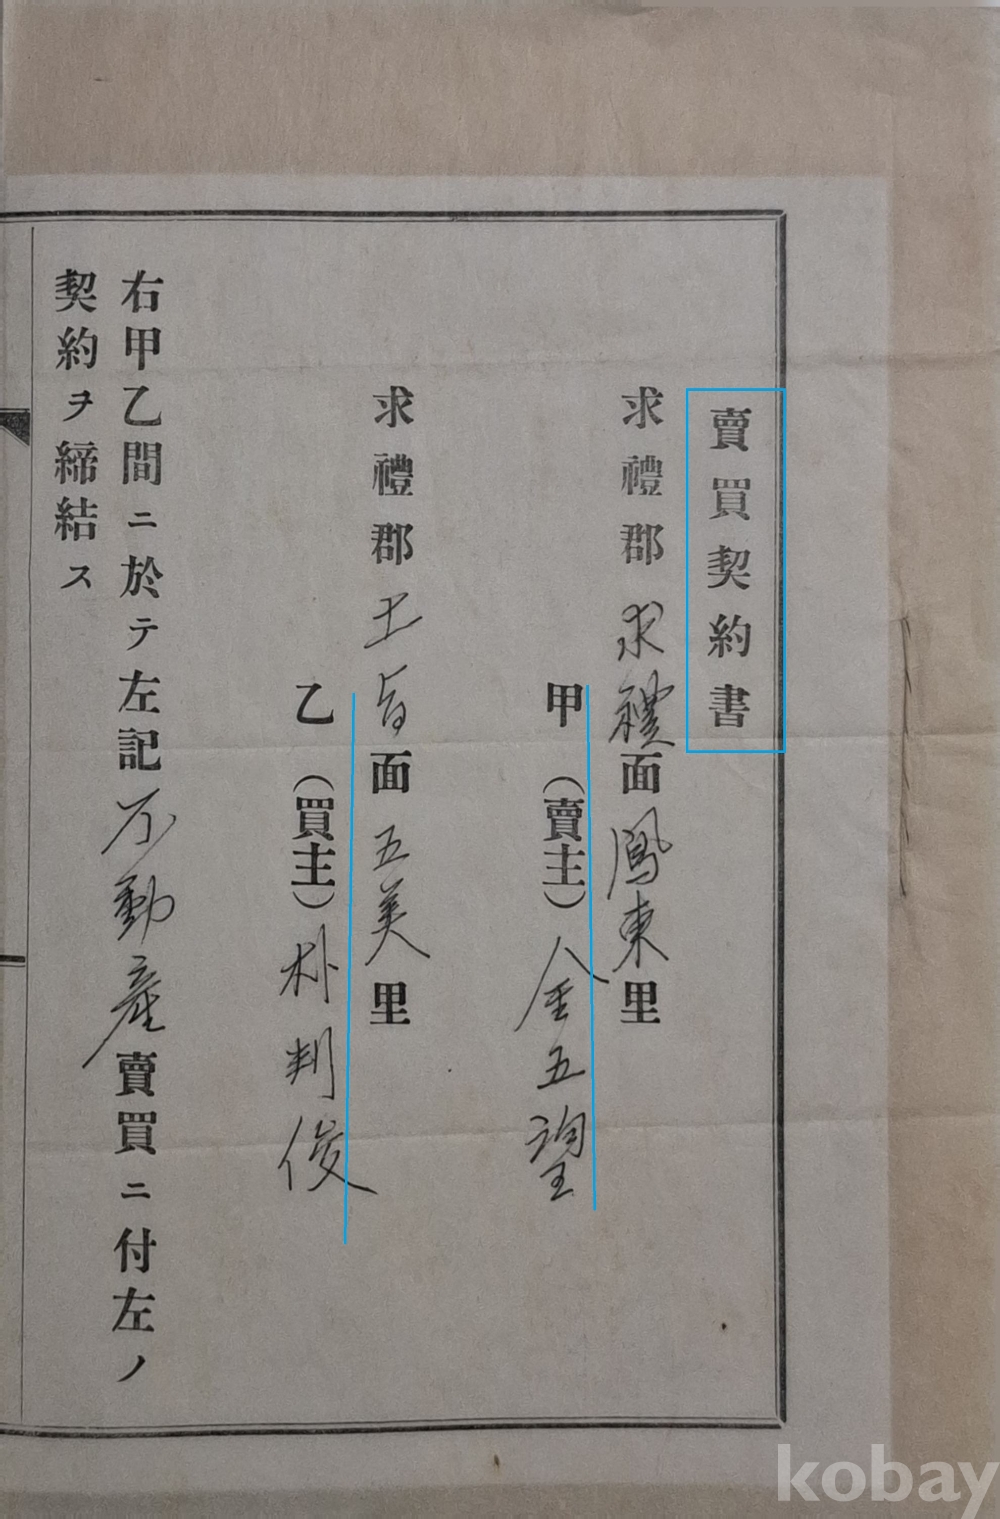 賣買契約書
求禮郡求禮面鳳東里
甲（賣主）金五望
求禮郡土旨面五美里
乙（買主）朴判俊
右甲乙間ニ於テ左記不動産賣買ニ付左ノ
契約ヲ締結ス
kobay